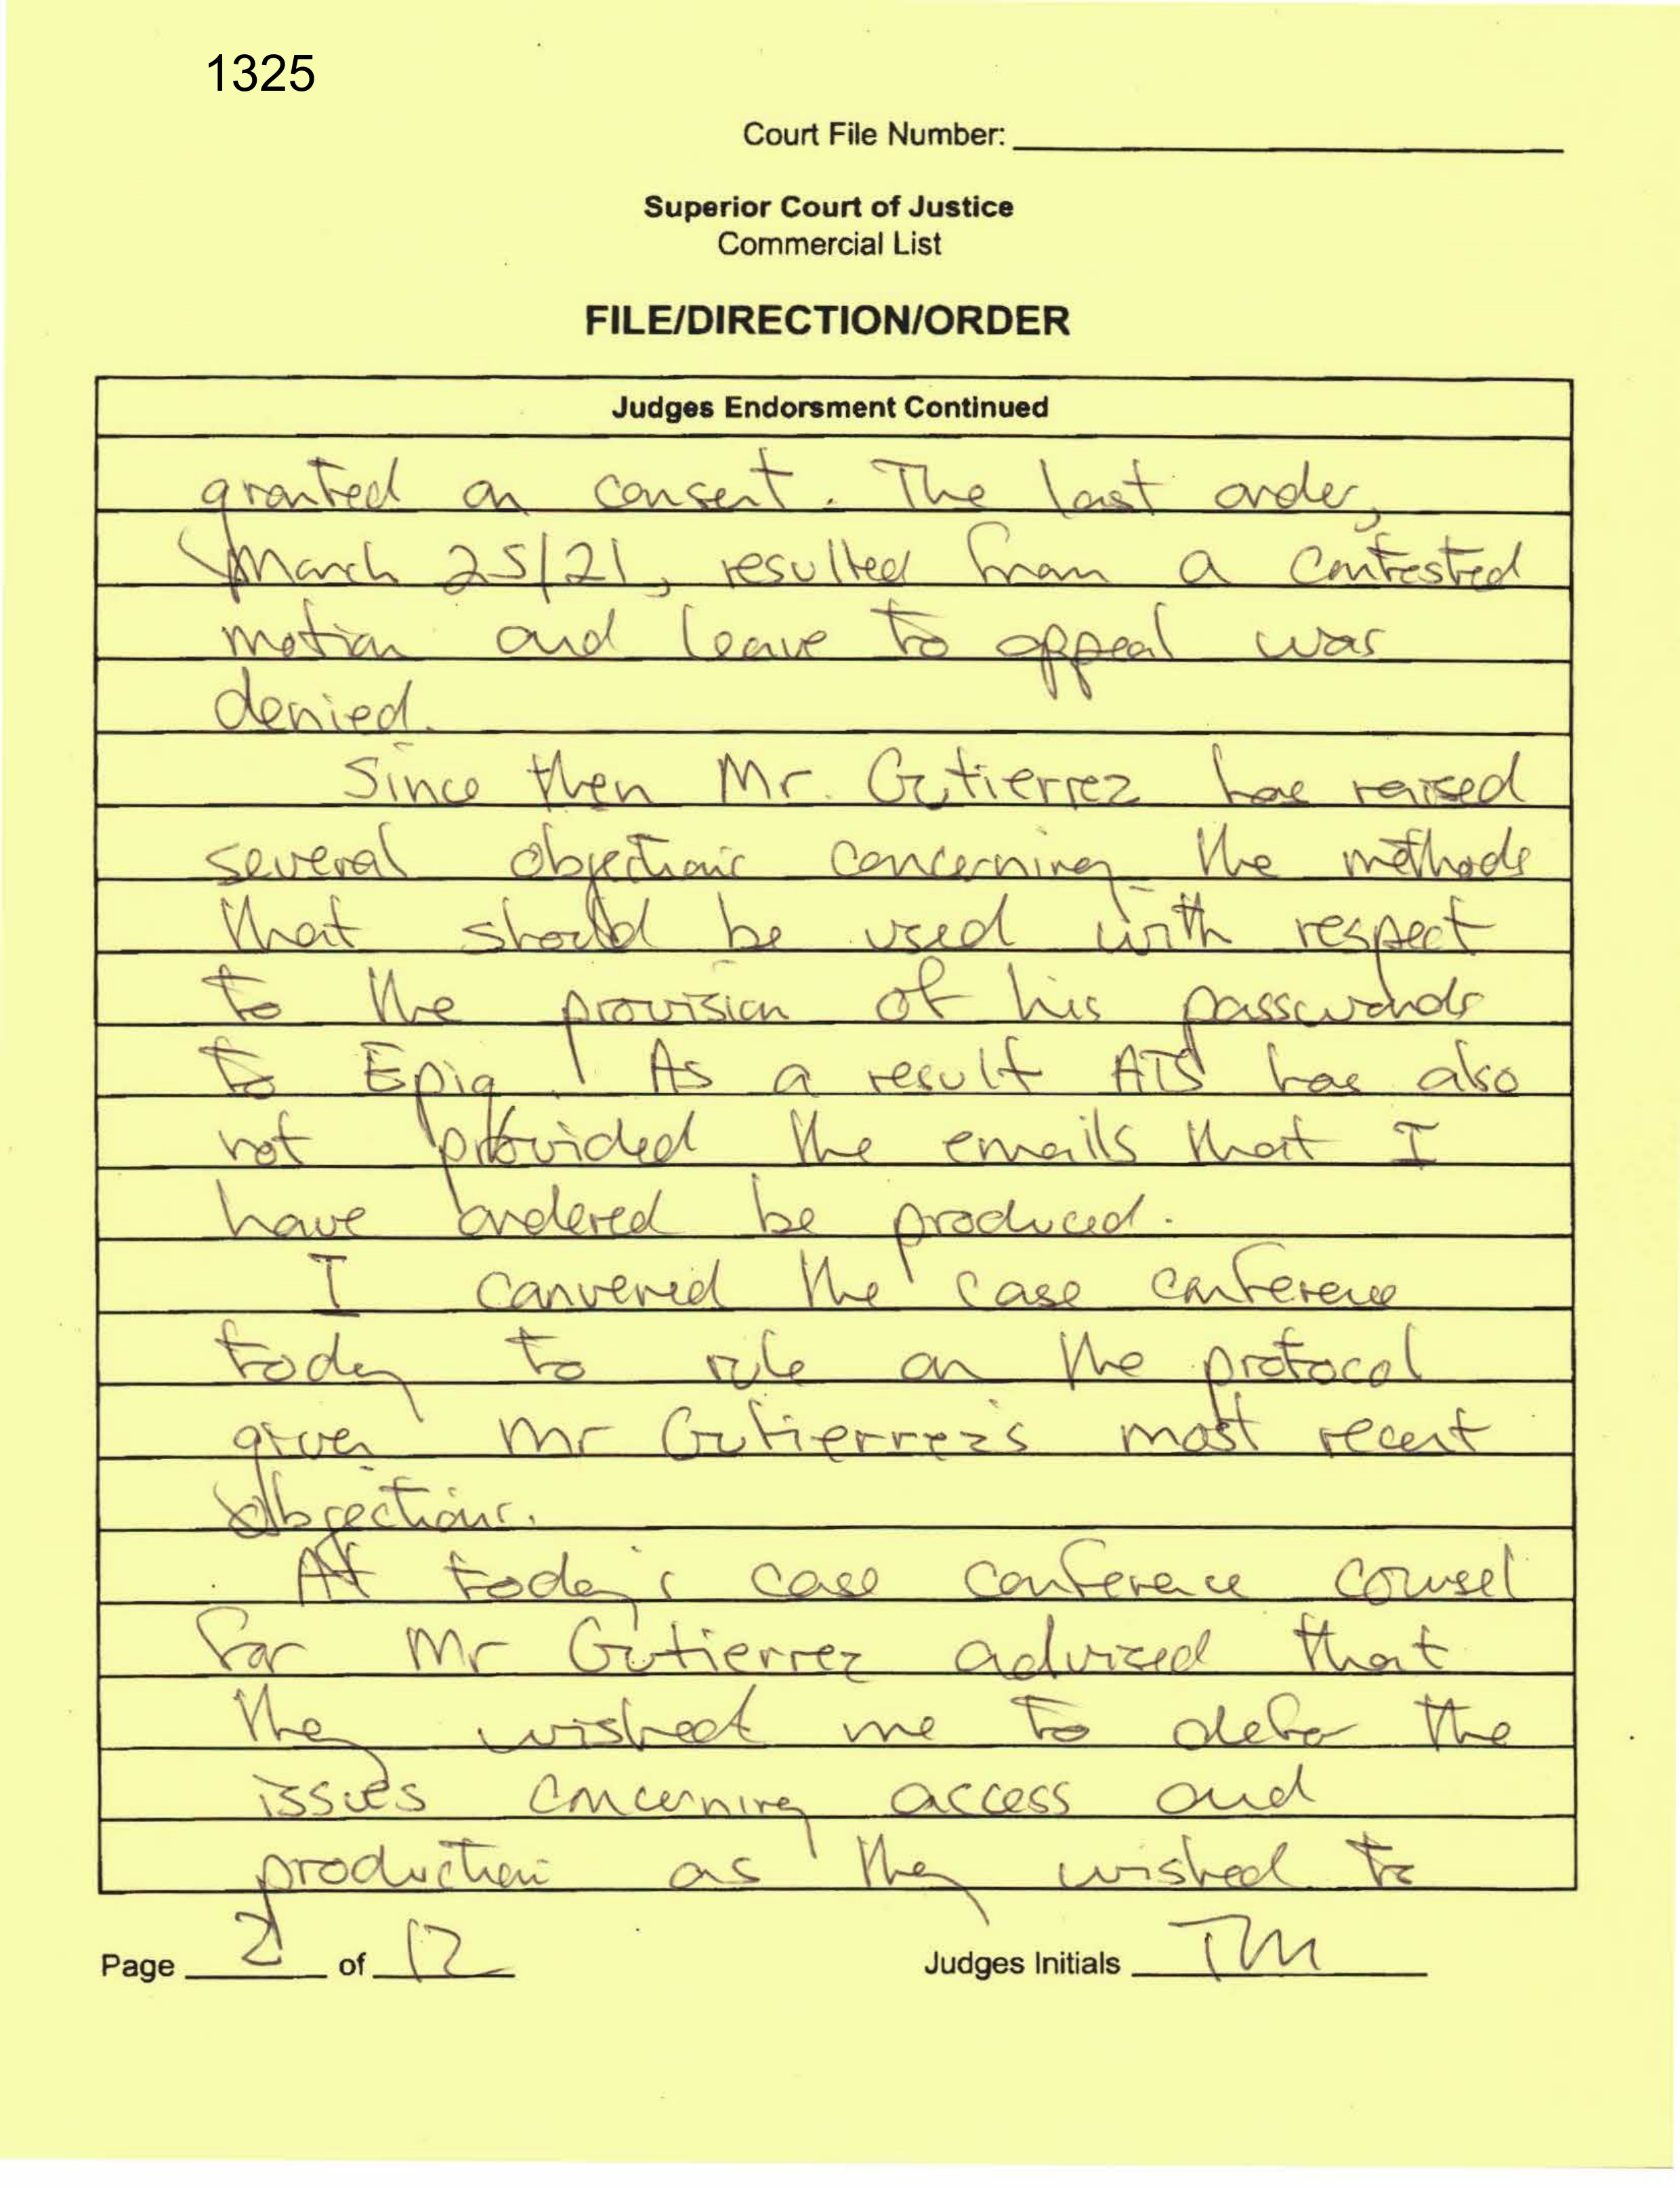 1325
Court File Number:
Superior Court of Justice
Commercial List
FILE/DIRECTION/ORDER
Judges Endorsment Continued
granted on consent. The last order,
March 25/21, resulted from a contested
motion and leave to appeal was
denied.
Since then Mr. Gutierrez has raised
several objections concerning the methods
that should be used with respect
to the provision of his passwords
to Epiq. As a result ATS has also
not provided the emails that I
have ordered be produced.
I convened the case conference
today to rule on the protocol
given Mr Gutierrez's most recent
objections.
At today's case conference counsel
for Mr Gutierrez advised that
they wished me to defer the
issues concerning access and
production as they wished to
Page 2 of 12
Judges Initials TM